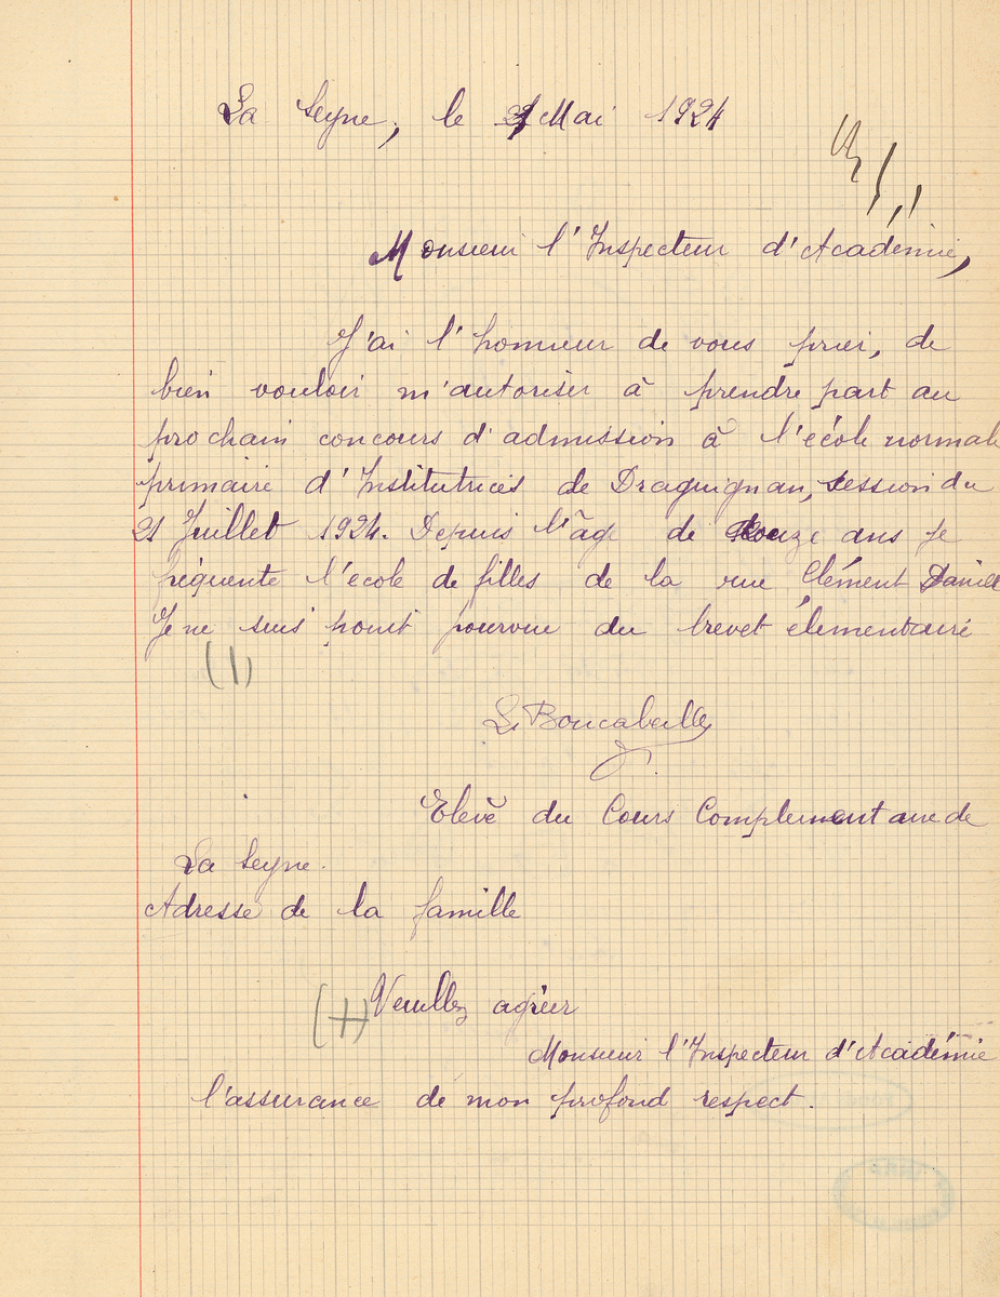 La Seyne, le Mai 1924
Monsieur l'Inspecteur d'Académie,
J'ai l'honneur de vous prier, de
bien vouloir m'autoriser à prendre part au
prochain concours d'admission à l'école normale
primaire d'Institutrices de Draguignan, session du
21 Juillet 1924. Depuis l'âge de douze ans je
fréquente l'école de filles de la rue Clément Daniel
Je ne suis point pourvue du brevet élémentaire
(1)
Boucabeille
Elève du Cours Complementaire de
La Seyne.
Adresse de la famille
(+) Veuillez agréer
Monsieur l'Inspecteur d'Académie
l'assurance de mon profond respect.